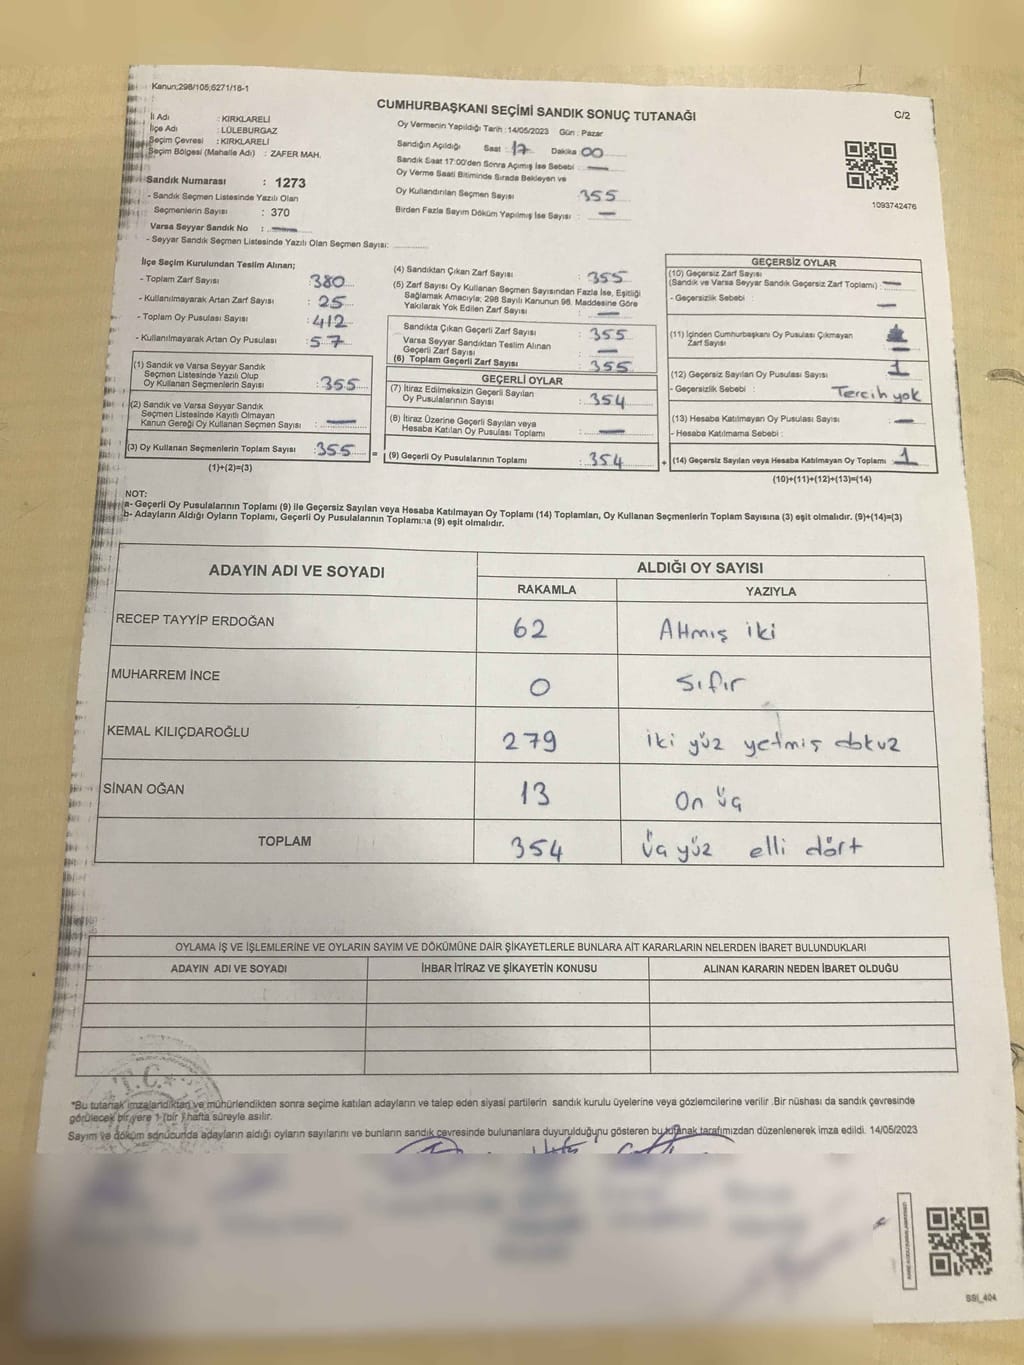 Kanun;298/105;6271/18-1
CUMHURBAŞKANI SEÇİMİ SANDIK SONUÇ TUTANAĞI
C/2
İl Adı : KIRKLARELİ
İlçe Adı : LÜLEBURGAZ
Seçim Çevresi : KIRKLARELİ
Seçim Bölgesi (Mahalle Adı) : ZAFER MAH.
Sandık Numarası : 1273
- Sandık Seçmen Listesinde Yazılı Olan
Seçmenlerin Sayısı : 370
Varsa Seyyar Sandık No : —
- Seyyar Sandık Seçmen Listesinde Yazılı Olan Seçmen Sayısı:
Oy Vermenin Yapıldığı Tarih : 14/05/2023 Gün : Pazar
Sandığın Açıldığı Saat : 17 Dakika 00
Sandık Saat 17:00'den Sonra Açılmış İse Sebebi : —
Oy Verme Saati Bitiminde Sırada Bekleyen ve
Oy Kullandırılan Seçmen Sayısı : 355
Birden Fazla Sayım Döküm Yapılmış İse Sayısı : —
1093742476
İlçe Seçim Kurulundan Teslim Alınan;
- Toplam Zarf Sayısı : 380
- Kullanılmayarak Artan Zarf Sayısı : 25
- Toplam Oy Pusulası Sayısı : 412
- Kullanılmayarak Artan Oy Pusulası : 57
(1) Sandık ve Varsa Seyyar Sandık
Seçmen Listesinde Yazılı Olup
Oy Kullanan Seçmenlerin Sayısı : 355
(2) Sandık ve Varsa Seyyar Sandık
Seçmen Listesinde Kayıtlı Olmayan
Kanun Gereği Oy Kullanan Seçmen Sayısı : —
(3) Oy Kullanan Seçmenlerin Toplam Sayısı : 355 =
(1)+(2)=(3)
(4) Sandıktan Çıkan Zarf Sayısı : 355
(5) Zarf Sayısı Oy Kullanan Seçmen Sayısından Fazla İse, Eşitliği
Sağlamak Amacıyla; 298 Sayılı Kanunun 98. Maddesine Göre
Yakılarak Yok Edilen Zarf Sayısı : —
Sandıkta Çıkan Geçerli Zarf Sayısı : 355
Varsa Seyyar Sandıktan Teslim Alınan
Geçerli Zarf Sayısı : —
(6) Toplam Geçerli Zarf Sayısı : 355
GEÇERLİ OYLAR
(7) İtiraz Edilmeksizin Geçerli Sayılan
Oy Pusulalarının Sayısı : 354
(8) İtiraz Üzerine Geçerli Sayılan veya
Hesaba Katılan Oy Pusulası Toplamı : —
(9) Geçerli Oy Pusulalarının Toplamı : 354 +
GEÇERSİZ OYLAR
(10) Geçersiz Zarf Sayısı
(Sandık ve Varsa Seyyar Sandık Geçersiz Zarf Toplamı) : —
- Geçersizlik Sebebi : —
(11) İçinden Cumhurbaşkanı Oy Pusulası Çıkmayan
Zarf Sayısı : —
(12) Geçersiz Sayılan Oy Pusulası Sayısı : 1
- Geçersizlik Sebebi : Tercih yok
(13) Hesaba Katılmayan Oy Pusulası Sayısı : —
- Hesaba Katılmama Sebebi :
(14) Geçersiz Sayılan veya Hesaba Katılmayan Oy Toplamı : 1
(10)+(11)+(12)+(13)=(14)
NOT:
a- Geçerli Oy Pusulalarının Toplamı (9) ile Geçersiz Sayılan veya Hesaba Katılmayan Oy Toplamı (14) Toplamları, Oy Kullanan Seçmenlerin Toplam Sayısına (3) eşit olmalıdır. (9)+(14)=(3)
b- Adayların Aldığı Oyların Toplamı, Geçerli Oy Pusulalarının Toplamına (9) eşit olmalıdır.
ADAYIN ADI VE SOYADI ALDIĞI OY SAYISI
RAKAMLA YAZIYLA
RECEP TAYYİP ERDOĞAN 62 Altmış iki
MUHARREM İNCE 0 Sıfır
KEMAL KILIÇDAROĞLU 279 iki yüz yetmiş dokuz
SİNAN OĞAN 13 On üç
TOPLAM 354 Üç yüz elli dört
OYLAMA İŞ VE İŞLEMLERİNE VE OYLARIN SAYIM VE DÖKÜMÜNE DAİR ŞİKAYETLERLE BUNLARA AİT KARARLARIN NELERDEN İBARET BULUNDUKLARI
ADAYIN ADI VE SOYADI İHBAR İTİRAZ VE ŞİKAYETİN KONUSU ALINAN KARARIN NEDEN İBARET OLDUĞU
T.C.
*Bu tutanak imzalandıktan ve mühürlendikten sonra seçime katılan adayların ve talep eden siyasi partilerin sandık kurulu üyelerine veya gözlemcilerine verilir .Bir nüshası da sandık çevresinde
görülecek bir yere 1 (bir ) hafta süreyle asılır.
Sayım ve döküm sonucunda adayların aldığı oyların sayılarını ve bunların sandık çevresinde bulunanlara duyurulduğunu gösteren bu tutanak tarafımızdan düzenlenerek imza edildi. 14/05/2023
SSI_404